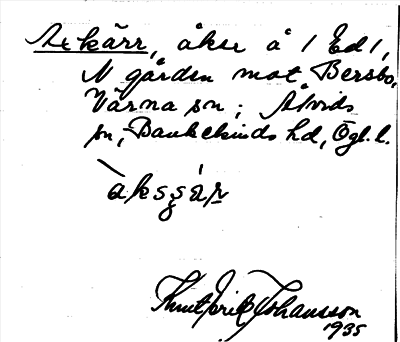 Axkärr, åker å / Ed /,
N gården mot Bersbo,
Värna sn; Åtvids
sn, Bankekinds hd, Ögl. l.
àksɟár
Knut Erik Johansson
1935